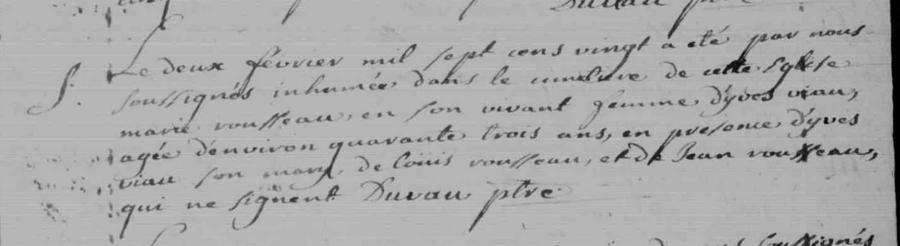 Duvau ptre
S. Le deux février mil sept cens vingt a eté par nous
soussignés inhumée dans le cimetiere de cette Eglese
marie rousseau, en son vivant femme d'yves viau,
agée d'environ quarante trois ans, en presence d'yves
viau son mary, de louis rousseau, et de Jean rousseau,
qui ne signent Duvau ptre
soussignés